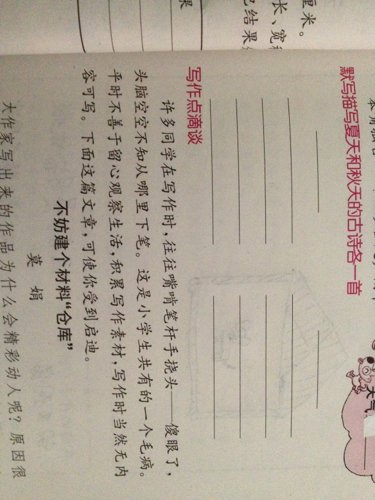 厘米。
长、宽
已结果
果
天气
默写描写夏天和秋天的古诗各一首
写作点滴谈
许多同学在写作时,往往嘴啃笔杆手挠头——傻眼了,
头脑空空不知从哪里下笔。这是小学生共有的一个毛病。
平时不善于留心观察生活,积累写作素材,写作时当然无内
容可写。下面这篇文章,可使你受到启迪。
不妨建个材料“仓库”
莫 娟
大作家写出来的作品为什么会精彩动人呢?原因很